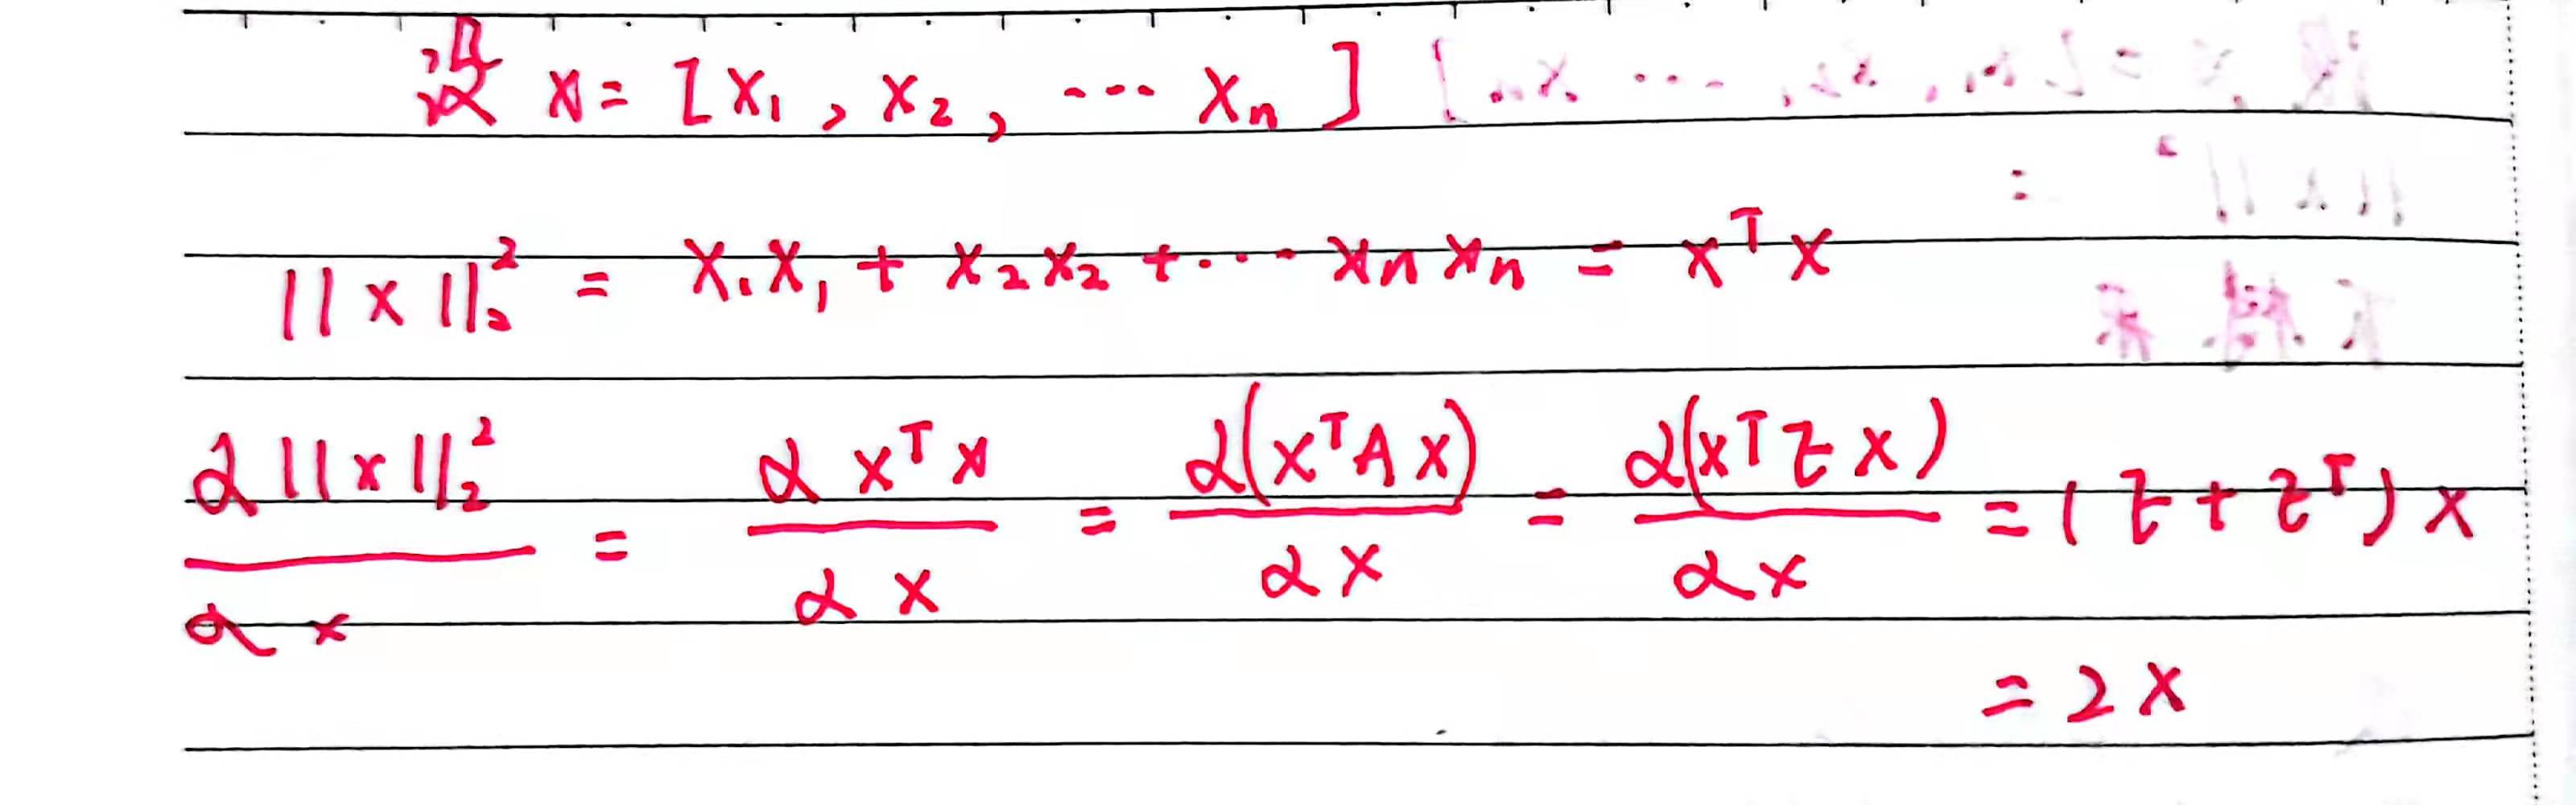 设 x = [x₁, x₂, ··· xₙ]
||x||₂² = x₁x₁ + x₂x₂ + ···· xₙxₙ = xᵀx
∂||x||₂² / ∂x = ∂xᵀx / ∂x = ∂(xᵀAx) / ∂x = ∂(xᵀEx) / ∂x = (E + Eᵀ)x
= 2x